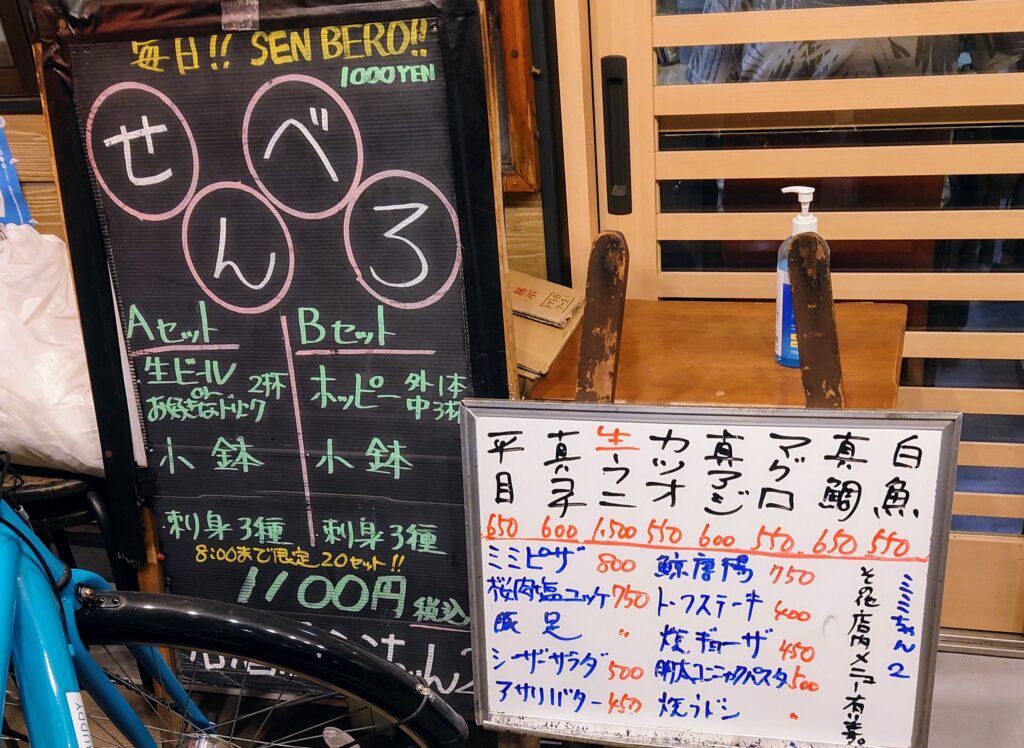 毎日!! SEN BERO!!
1000YEN
せんべろ
Aセット
生ビール
or
お好きなドリンク
2杯
小鉢
刺身3種
Bセット
ホッピー
外1本
中3杯
小鉢
刺身3種
8:00まで限定20セット!!
1100円 税込
白魚 550
真鯛 650
マグロ 550
真アジ 600
カツオ 550
生ウニ 1,500
真コチ 600
平目 650
ミミちゃん2
その他店内メニュー有〼。
鯨唐揚 750
トーフステーキ 400
焼ギョーザ 450
明太コニャックパスタ 500
焼うドン 〃
ミミピザ 800
桜肉塩ユッケ 750
豚足 〃
シーザーサラダ 500
アサリバター 450